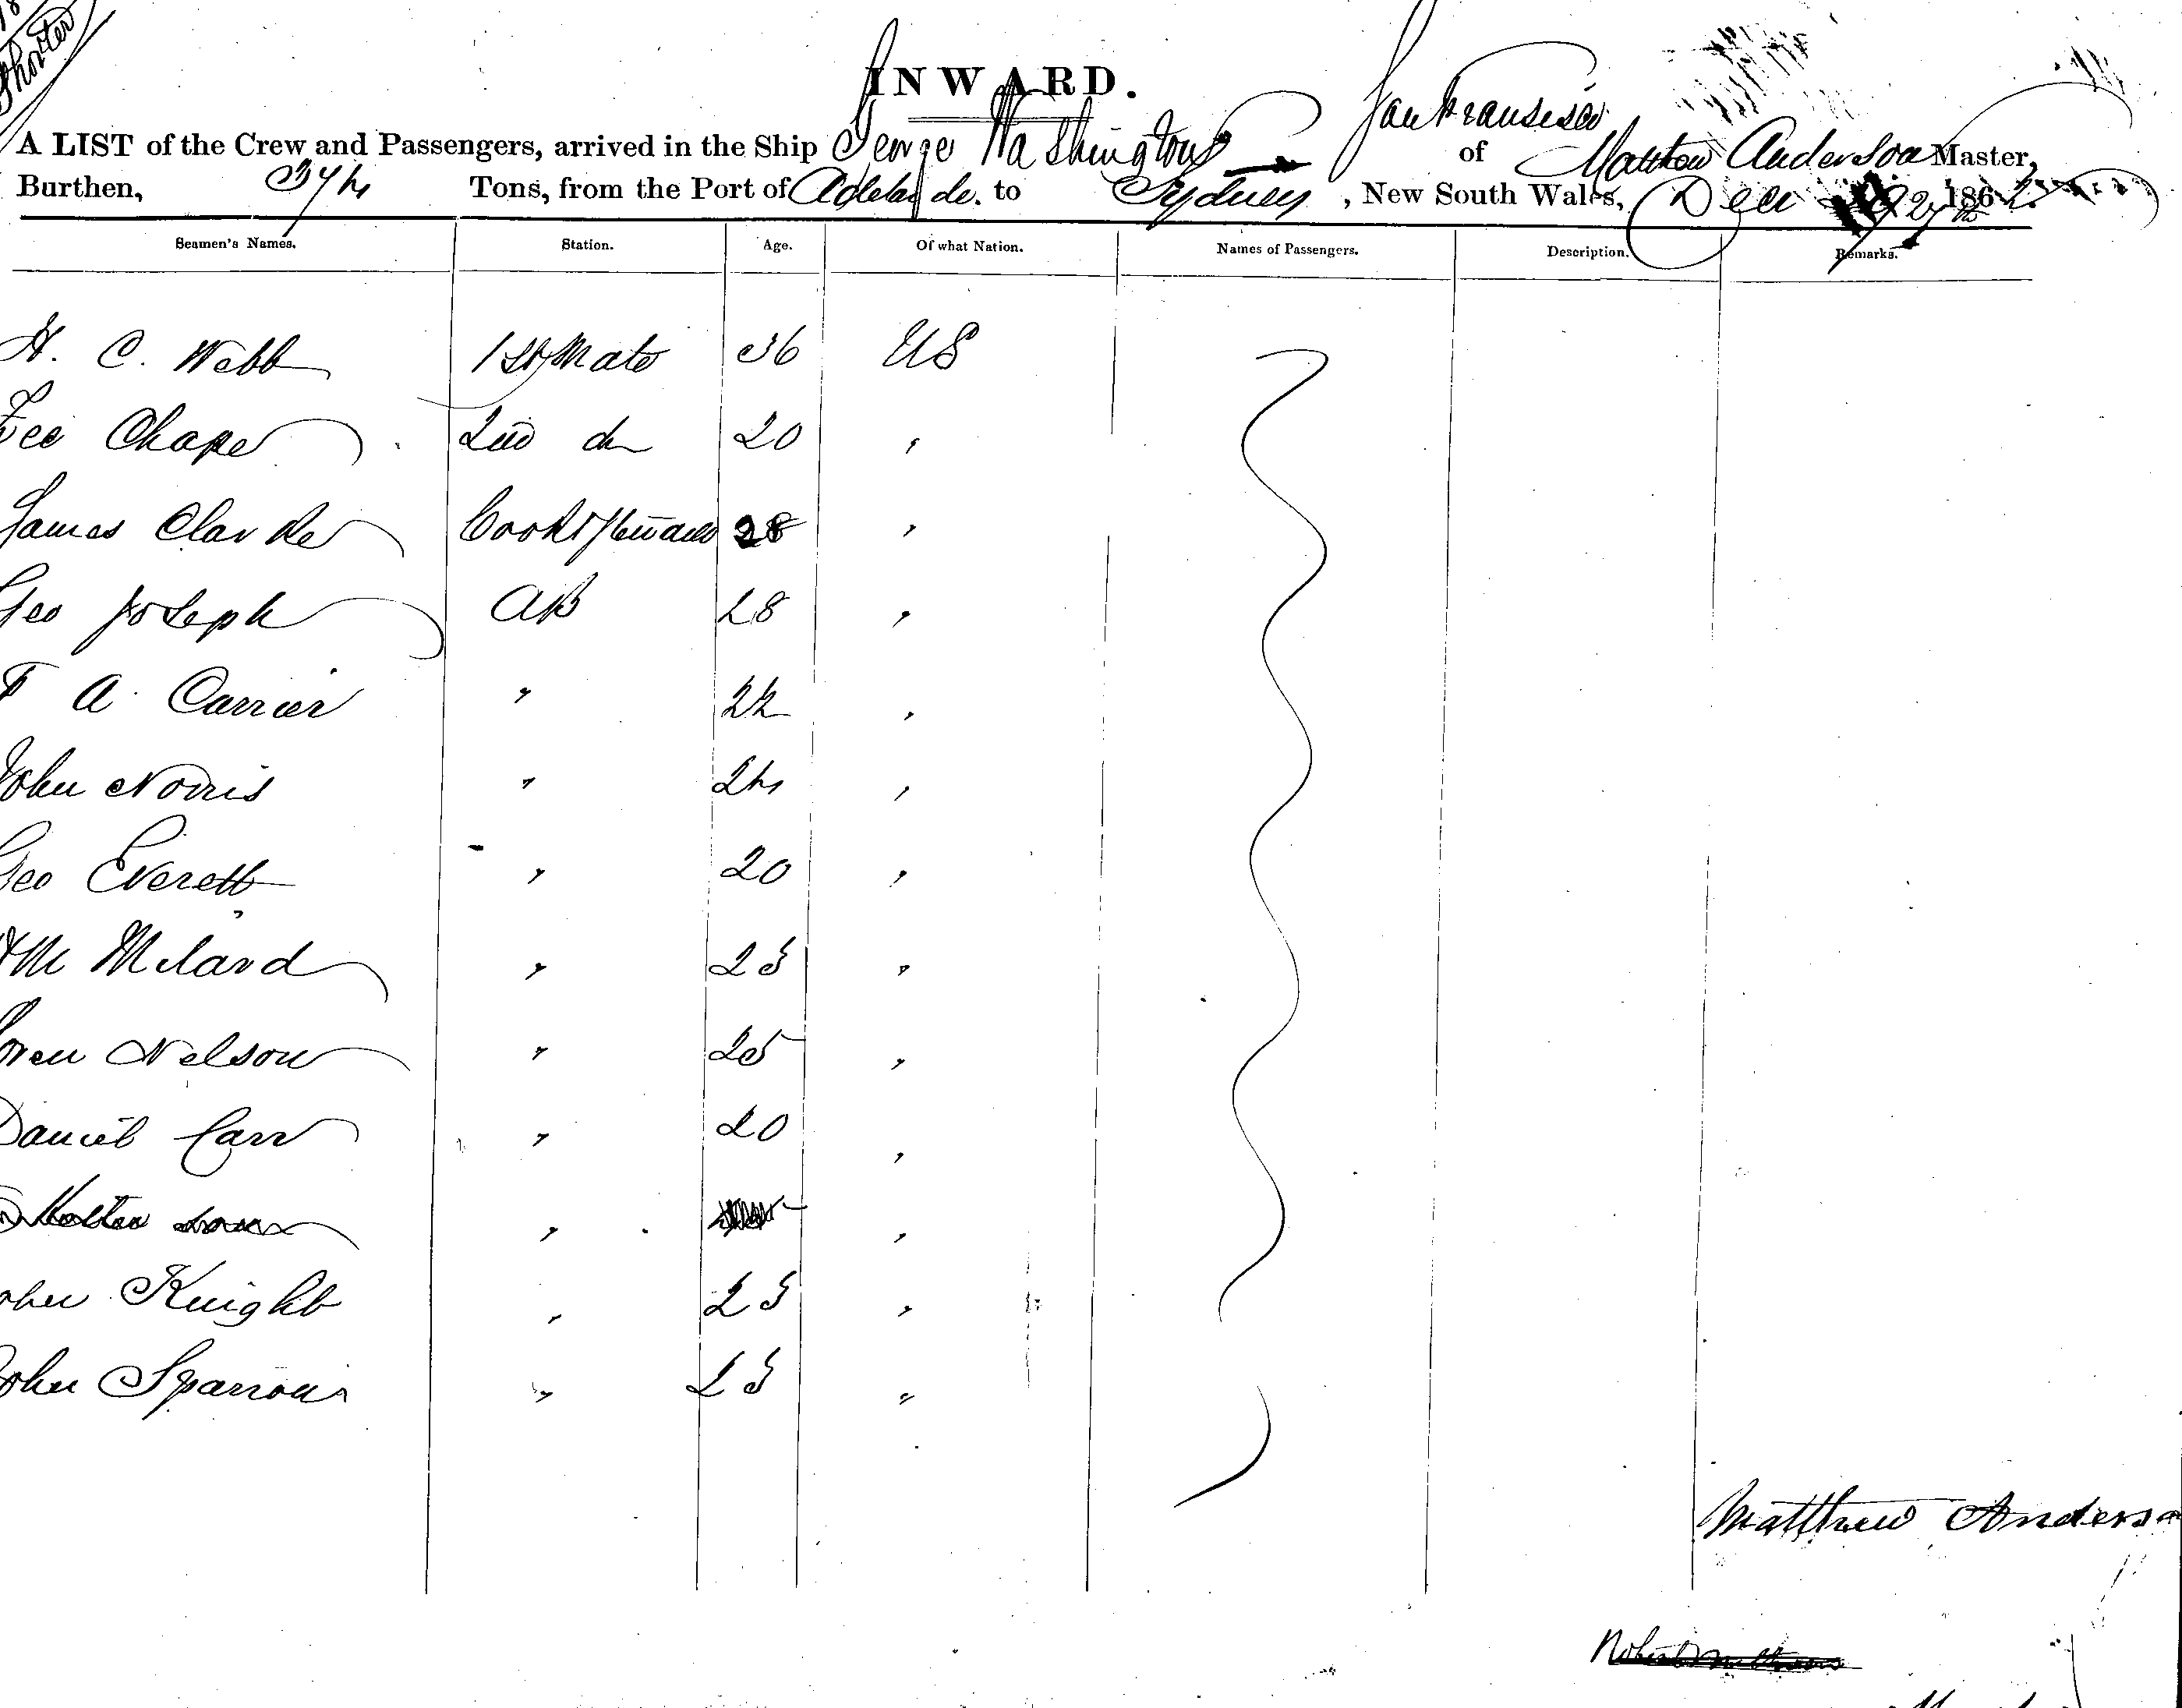 Shorter
INWARD.
A LIST of the Crew and Passengers, arrived in the Ship George Washington of San Fransisco Matthew Anderson Master,
Burthen, 374 Tons, from the Port of Adelaide. to Sydney, New South Wales, Dec 27th 1862
Seamen's Names. Station. Age. Of what Nation. Names of Passengers. Description. Remarks.
H. C. Webb 1st Mate 36 US
Chape 2nd do 20 "
James Clarke Cook & Steward 28 "
Geo Joseph AB 28 "
F A. Carrier " 22 "
John Norris " 24 "
Geo Everett " 20 "
Wm Milard " 23 "
Nelson " 25 "
Daniel Carr " 20 "
" "
John Knight " 23 "
John Sparrow " 23 "
Matthew Anderso